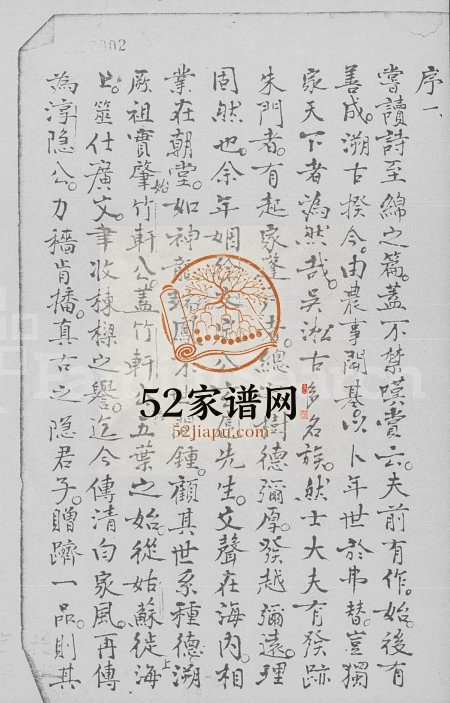 002
序一
嘗讀詩至綿之篇。蓋不禁嘆賞云。夫前有作。始後有
善成。溯古揆今。由農事開基。以卜年世於弗替。豈獨
家天下者為然哉。吳淞古多名族。然士大夫有發跡
朱門者。有起家蓬 總 樹德彌厚。發越彌遠。理
固然也。余年姻 公 先生。文聲在海內。相
業在朝堂。如神龍 鳳 不 鍾。顧其世系種德。溯
厥祖實肇始竹軒公。蓋竹軒公 五葉之始。從姑蘇徙海
上。筮仕廣文。聿收棟樑之譽。迄今傳清白家風。再傳
為淳隱公。力穡肯播。真古之隱君子。贈躋一品。則其
52家谱网
52jiapu.com